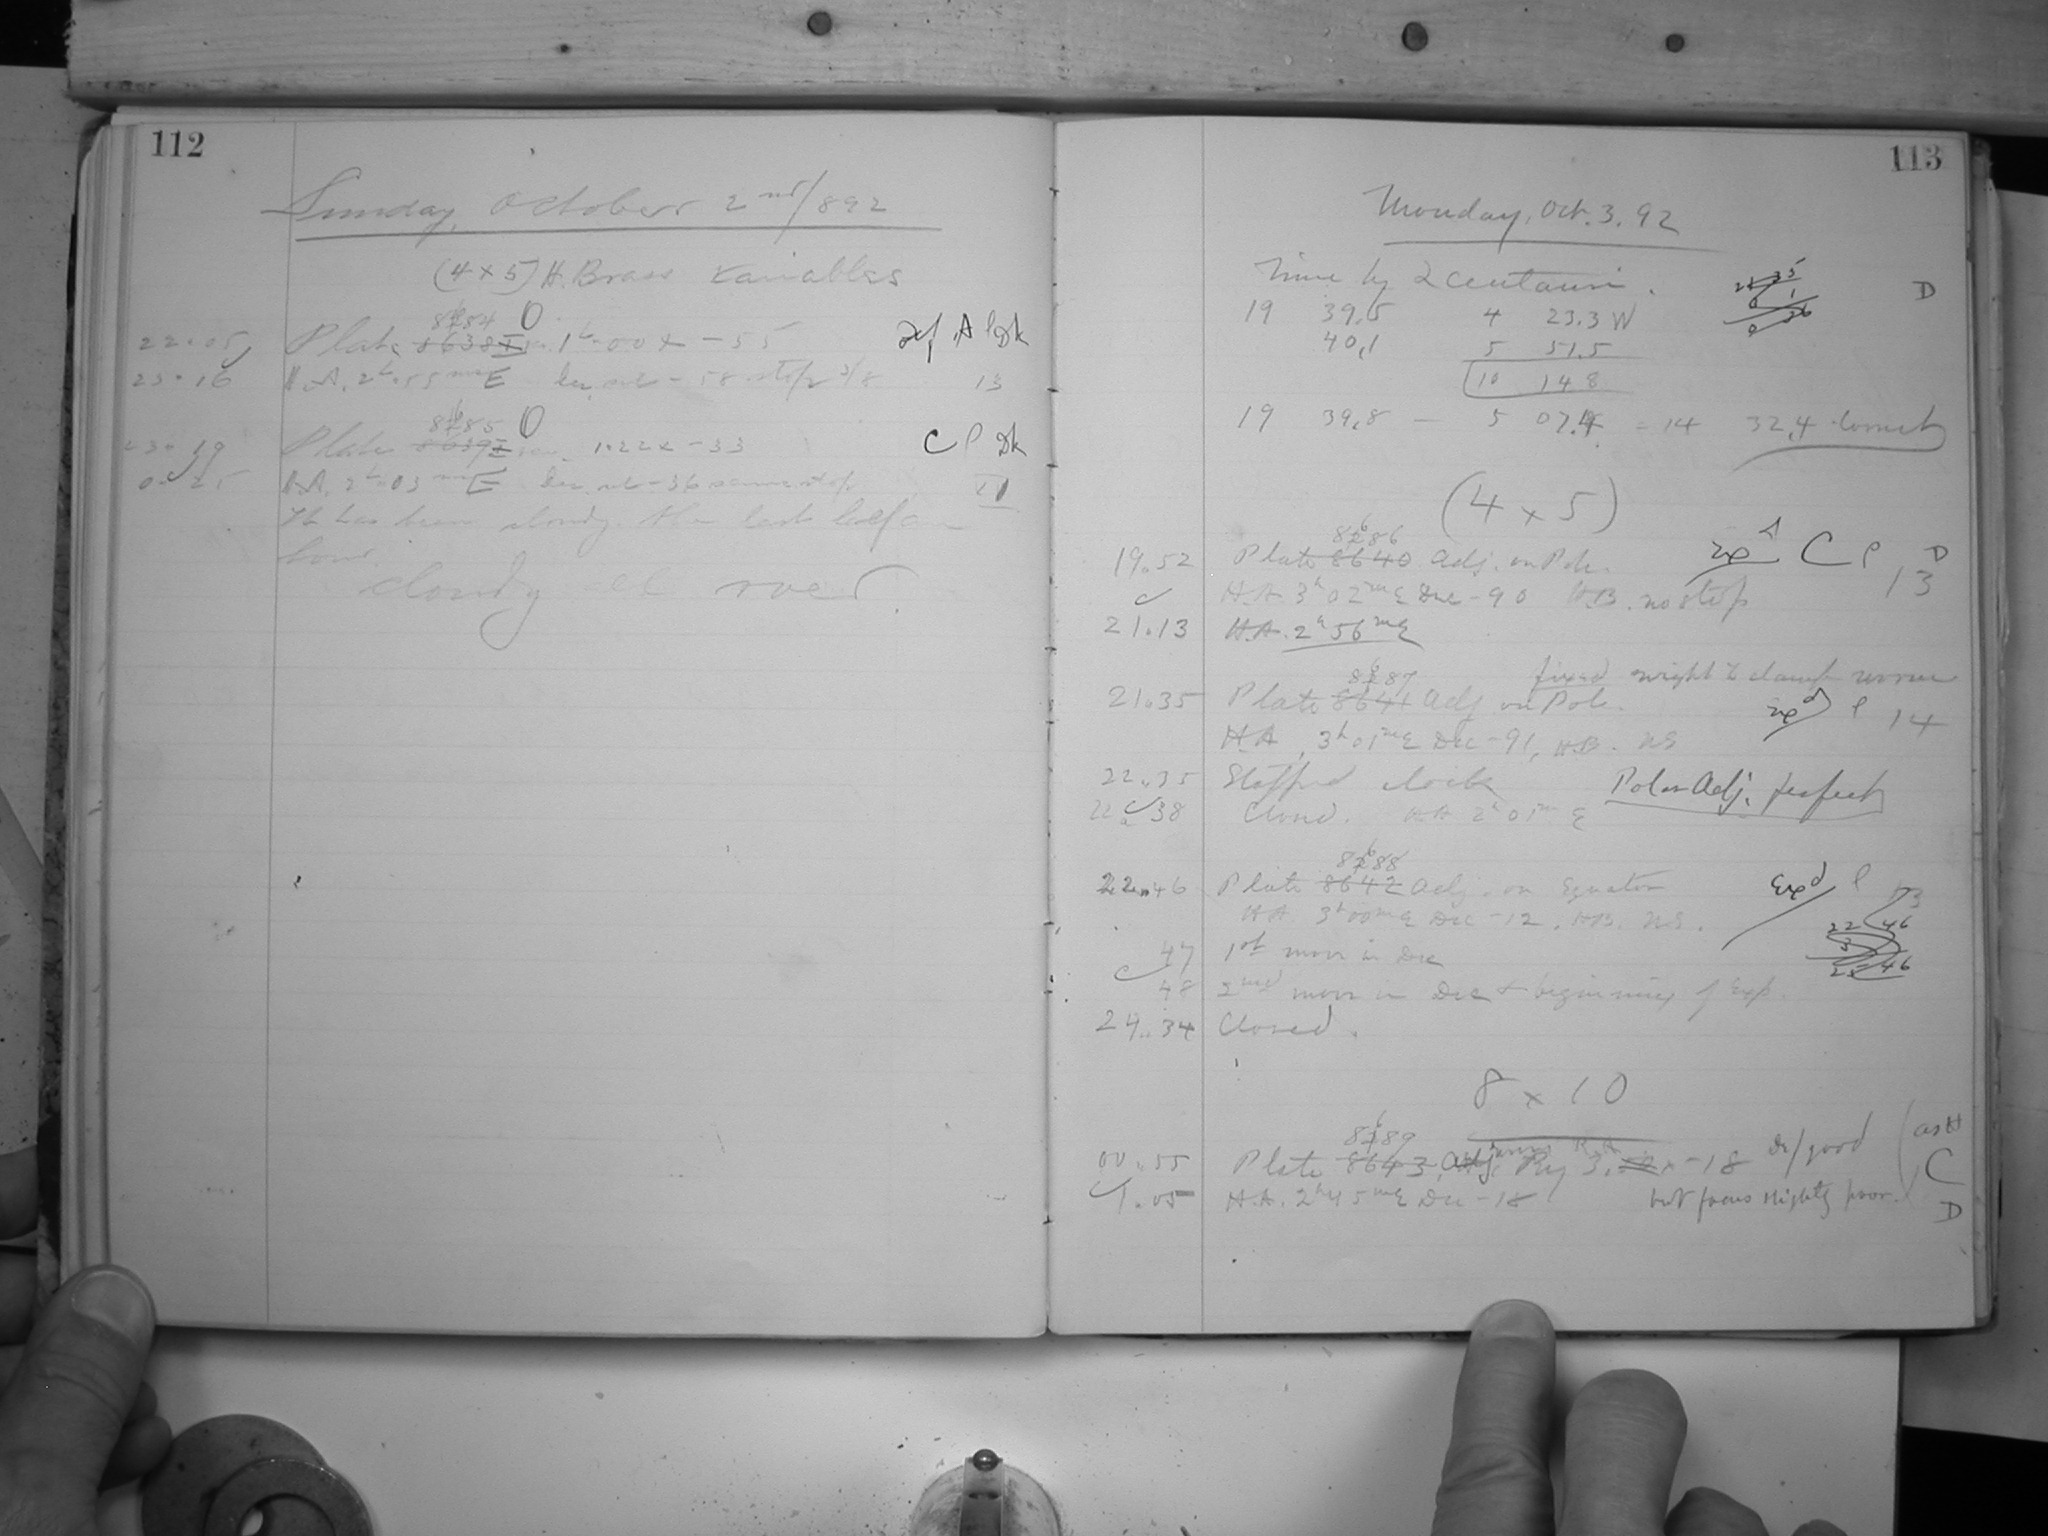 112
Sunday, October 2nd/892
(4 x 5) H. Brass Variables
8684 O
22.05 Plate 8638 1h 00 x -55 A P Dk
23.16 H.A. 2h 55m E Dec. set -58 stop 3/8 13
8685 O
23.19 Plate 8639 1.22 x -33 C P Dk
0.25 H.A. 2h 03m E Dec. set -36 same stop
It has been cloudy the last half an
hour.
cloudy all over.
113
Monday, Oct. 3, 92
Time by 2 Centauri. D
19 39.5 4 23.3 W
40.1 5 51.5
10 14 8
19 39.8 — 5 07.4 = 14 32.4 correct
(4 x 5)
8686
19.52 Plate 8640 Adj. on Pole. C P D
H.A. 3h 02m E Dec -90 H.B. no stop 13
21.13 H.A. 2h 56m E
8687 fixed weight to clamp
21.35 Plate 8641 Adj on Pole. P 14
H.A. 3h 01m E Dec -91, H.B. NS
22.35 Stopped clock Polar Adj. perfect
22.38 Closed. H.A. 2h 01m E
8688
22.46 Plate 8642 Adj. on Equator Expd P 13
H.A. 3h 00m E Dec -12. H.B. N.S. 22 46
47 1st move in Dec 3
23 46
48 2nd move in Dec + beginning of Exp.
24.34 Closed.
8 x 10
8689
00.55 Plate 8643, Adj. -18 good
C
1.05 H.A. 2h 45m E Dec -18 but focus slightly poor.
D